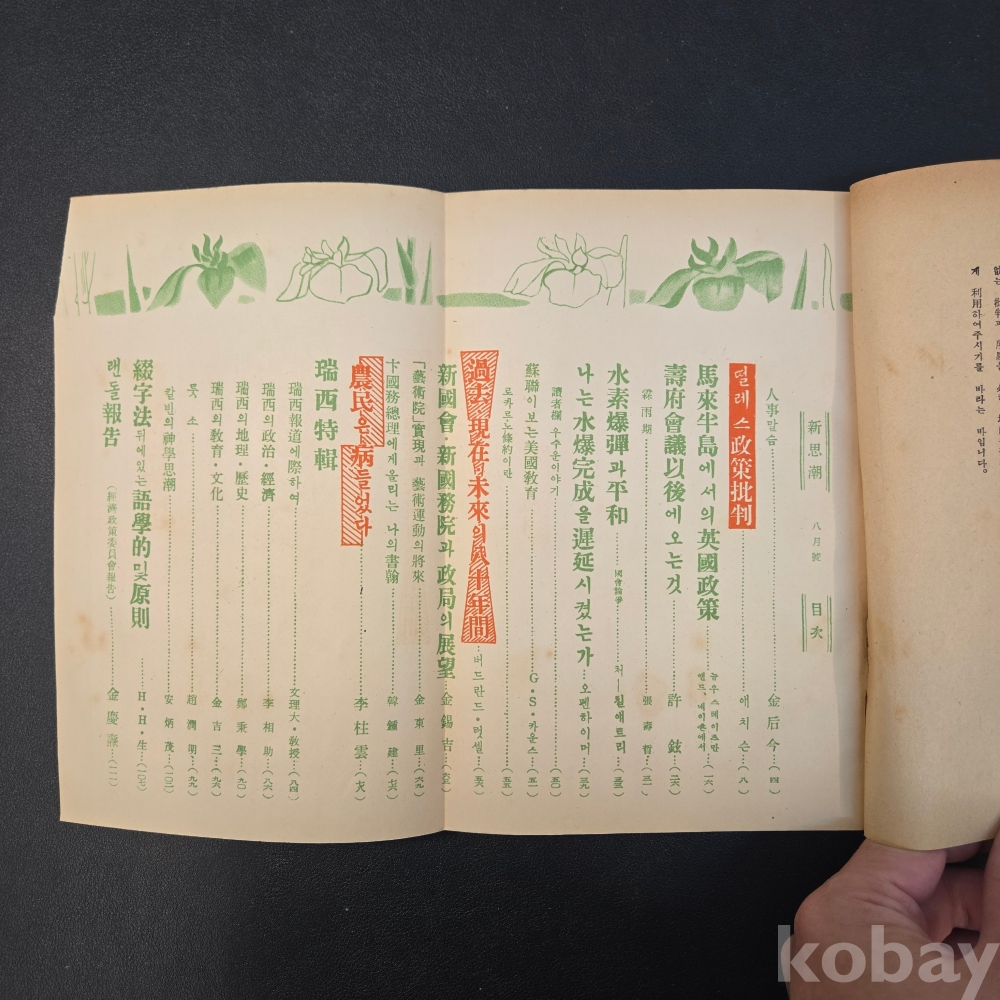 게 利用하여주시기를 바라는 바입니다.
新思潮 八月號 目次
人事말슴 金后今 (四)
떨레스政策批判 애치슨 (八)
馬來半島에서의英國政策 뉴우·스테이츠만 앤드·네이슌에서 (一六)
壽府會議以後에오는것 許鉉 (二六)
霖雨期 張壽哲 (三一)
水素爆彈과平和 國會論爭 처—칠애트리 (三三)
나는水爆完成을遲延시켰는가 오펜하이머 (三九)
讀者欄 우주운이야기 (五〇)
蘇聯이보는美國敎育 G·S·카운스 (五一)
로카르노條約이란 (五五)
過去 現在 未來의八十年間 버드란드·럿셀 (五六)
新國會·新國務院과政局의展望 金錫吉 (六三)
「藝術院」實現과 藝術運動의將來 金東里 (六九)
卞國務總理에게올리는 나의書翰 韓鍾建 (七六)
農民은病들었다 李柱雲 (七八)
瑞西特輯
瑞西報道에際하여 文理大·敎授 (八四)
瑞西의政治·經濟 李相助 (八六)
瑞西의地理·歷史 鄭秉學 (九〇)
瑞西의敎育·文化 金吉三 (九六)
룻소 趙潤明 (九九)
칼빈의神學思潮 安炳茂 (一〇二)
綴字法뒤에있는語學的및原則 H·H·生 (一〇七)
랜돌報告 (經濟政策委員會報告) 金慶 (一一一)
kobay